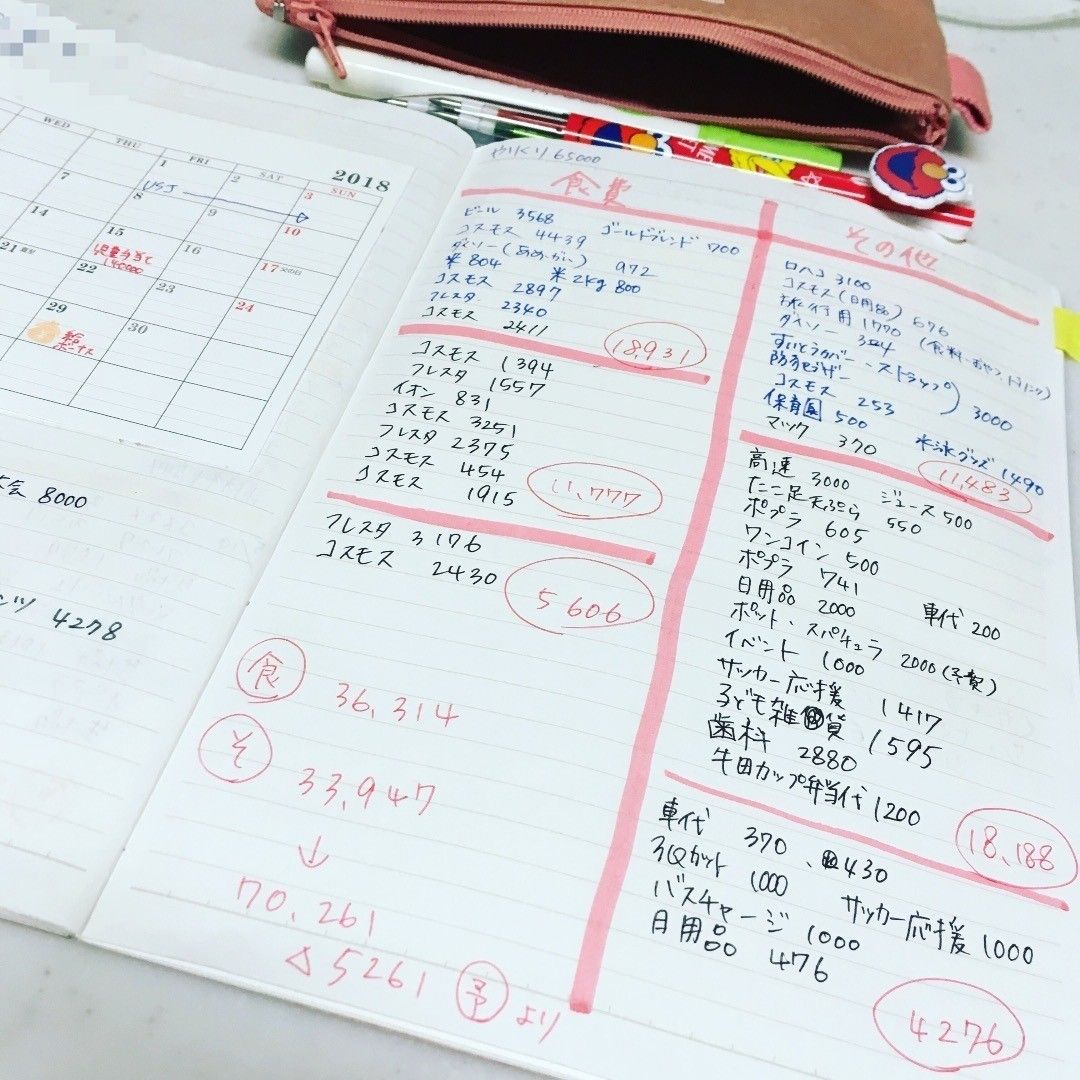 WED THU FRI SAT SUN
2018
1 2 3
USJ
7 8 9 10
14 15 16 17 父の日
児童手当て
140000
21 22 23 24
29 30
ボーナス
会 8000
ツ 4278
やりくり 65000
食費
ビール 3568 ゴールドブレンド 700
コスモス 4439
ダイソー 972
米 804 米2kg 800
コスモス 2897
フレスタ 2340
コスモス 2411
18,931
コスモス 1394
フレスタ 1557
イオン 831
コスモス 3251
フレスタ 2375
コスモス 454
コスモス 1915
11,777
フレスタ 3176
コスモス 2430
5606
食 36,314
そ 33,947
↓
70,261
△5261 予より
その他
ロハコ 3100
コスモス(日用品) 676
用 1770
ダイソー 324 (食料、おやつ、ドリンク)
すいとうカバー・ストラップ
防犯ブザー 3000
コスモス 253
保育園 500 水泳グッズ 1490
マック 370
11,483
高速 3000 ジュース 500
たこ足天ぷら 550
ポプラ 605
ワンコイン 500
ポプラ 741
日用品 2000 車代 200
ポット・スパチュラ 2000(予費)
イベント 1000
サッカー応援 1417
子ども雑貨 1595
歯科 2880
牛田カップ弁当代 1200
18,188
車代 370、430
子Qカット 1000 サッカー応援 1000
バスチャージ 1000
日用品 476
4276